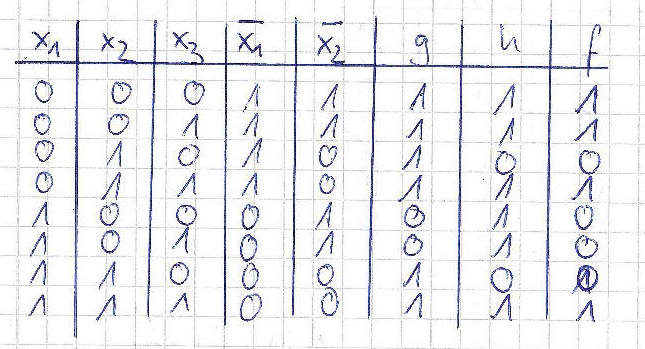 x₁ x₂ x₃ x̄₁ x̄₂ g h f
0 0 0 1 1 1 1 1
0 0 1 1 1 1 1 1
0 1 0 1 0 1 0 0
0 1 1 1 0 1 1 1
1 0 0 0 1 0 1 0
1 0 1 0 1 0 1 0
1 1 0 0 0 1 0 0
1 1 1 0 0 1 1 1